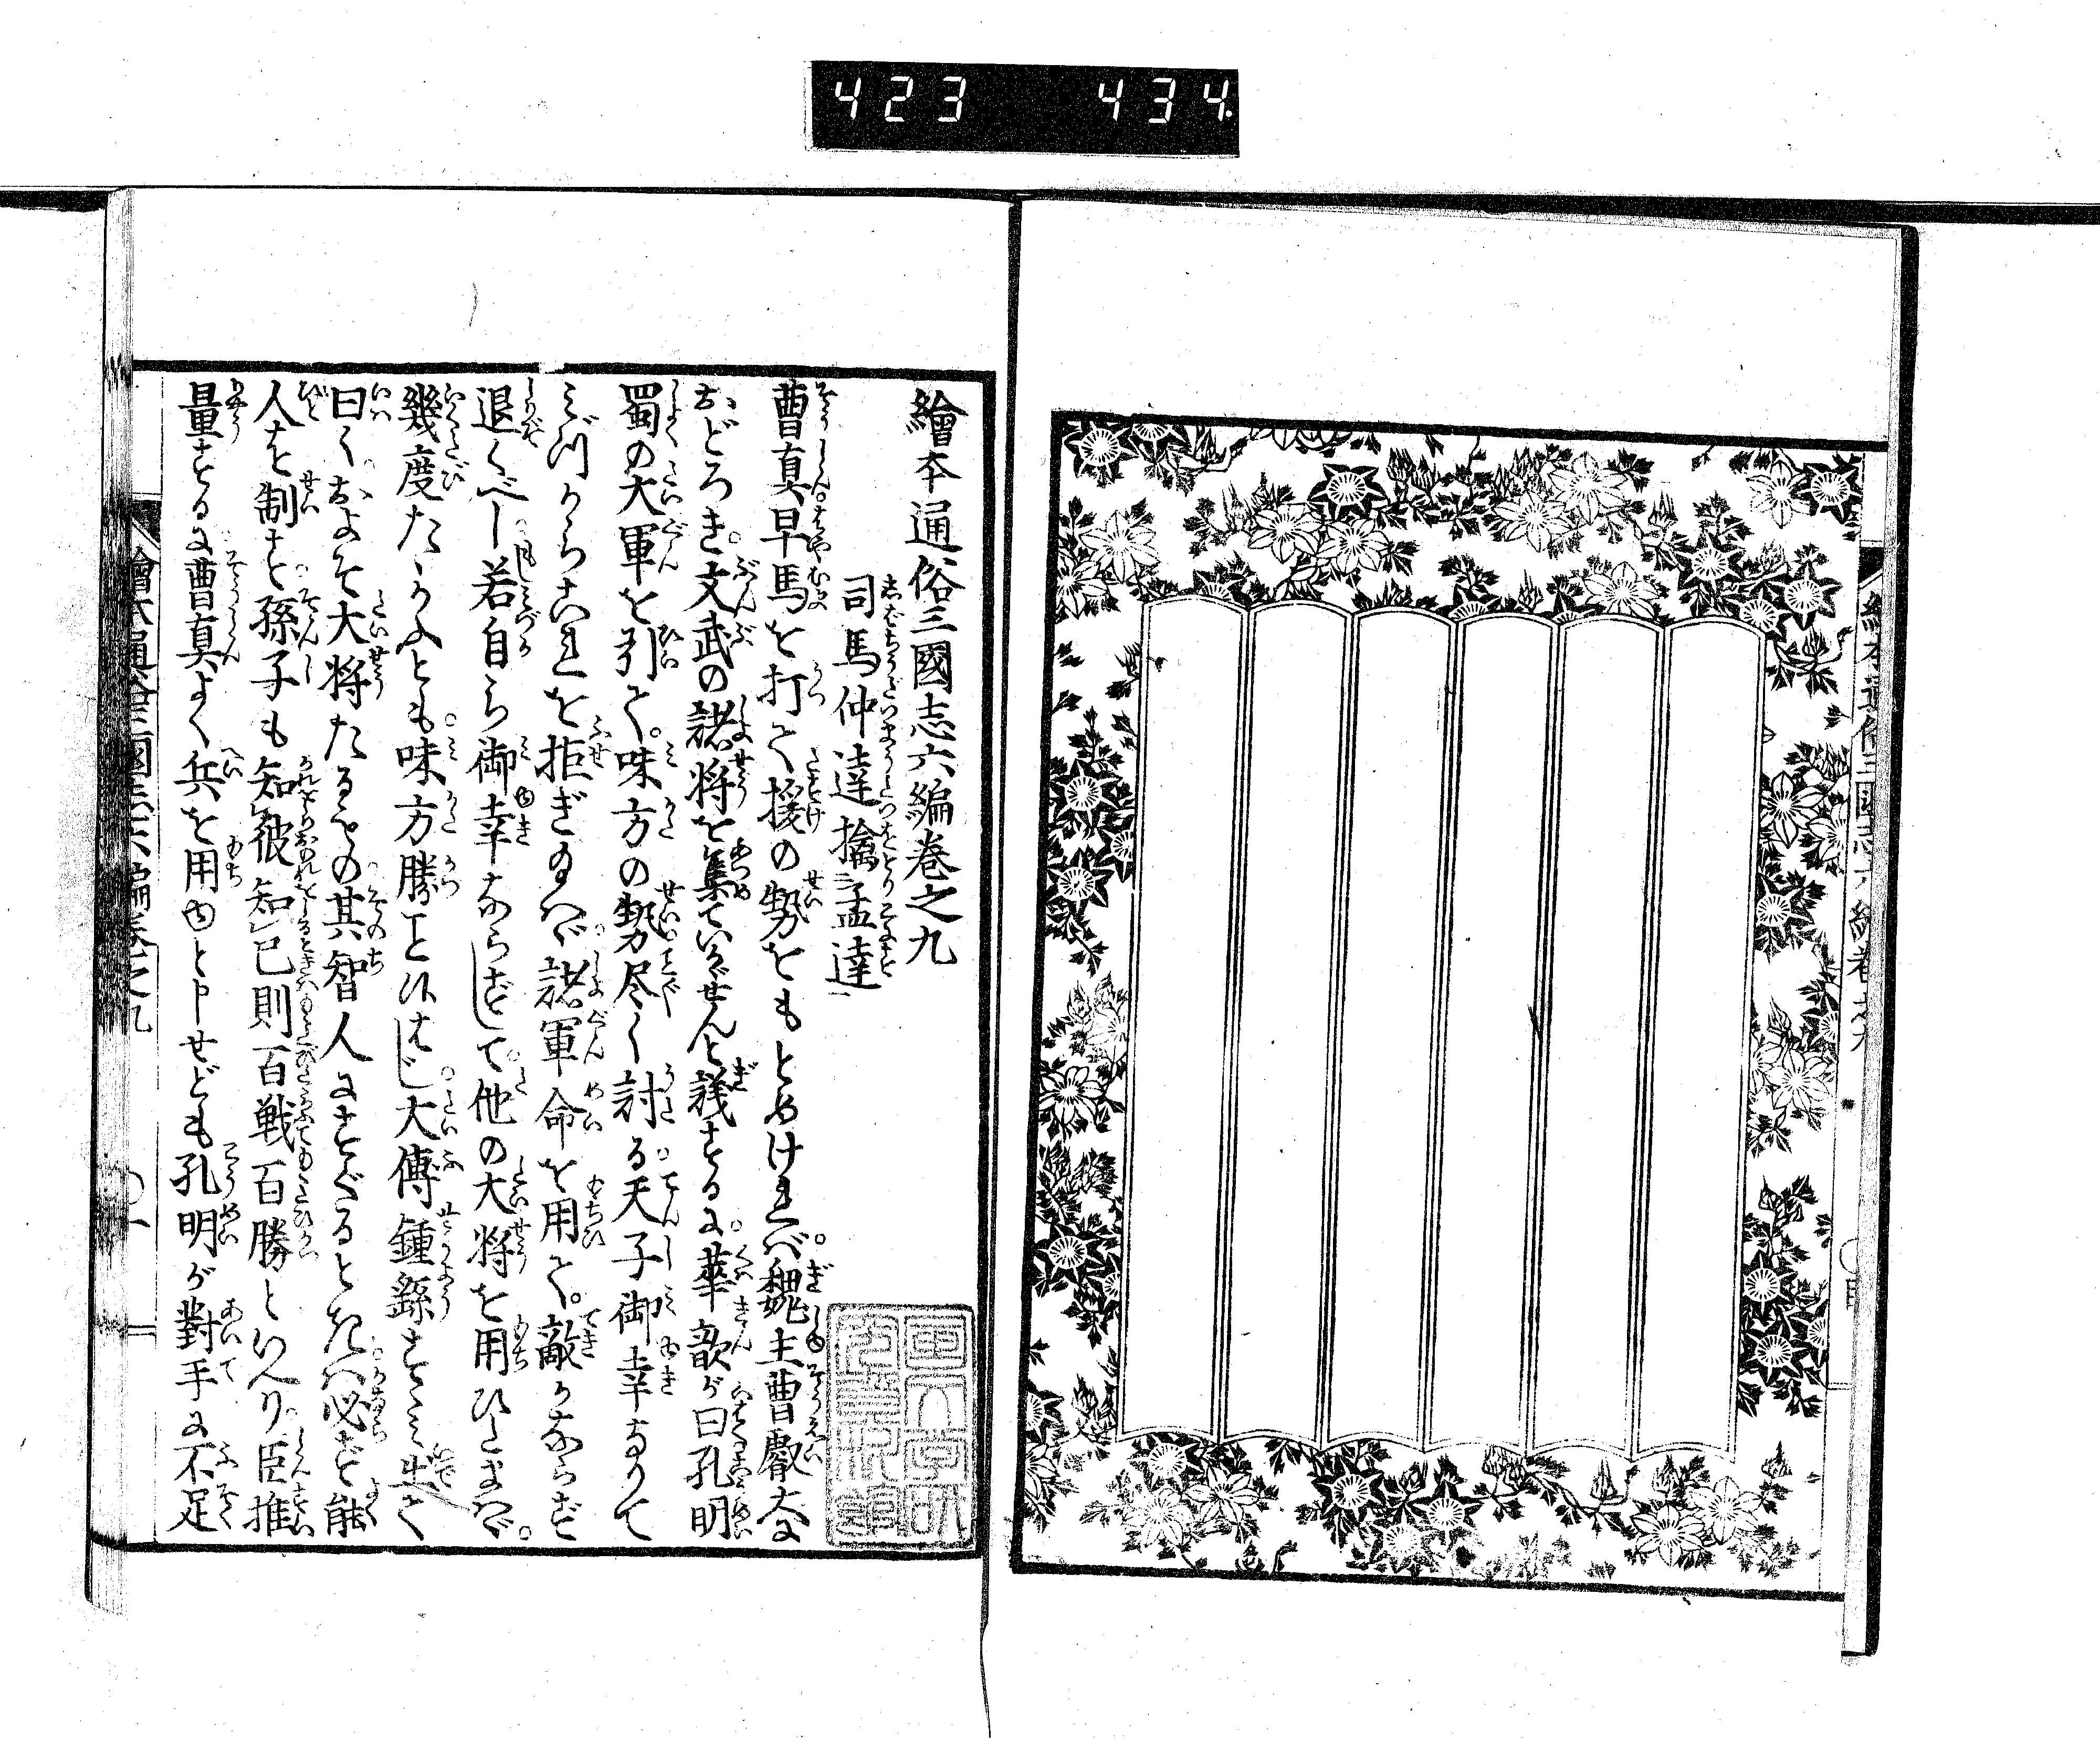 423 434
繪本通俗三國志六編巻之九
司馬仲達擒孟達
曹真早馬を打て援の勢をもとめけれバ。魏主曹叡大に
おどろき。文武の諸将を集ていかゞせんと議するに。華歆が曰孔明
蜀の大軍を引て。味方の勢尽く討る。天子御幸ありて
みづからこれを拒ぎ給ハゞ。諸軍命を用て。敵かならず
退くべし。若自ら御幸ならずして。他の大将を用ひたまハゞ。
幾度たゝかふとも。味方勝こと候はじ。大傅鍾繇すゝみ出て
曰く。およそ大将たるもの。其智人にすぐるときハ。必ず能
人を制す。孫子も知彼知己則百戦百勝といへり。臣推
量するに曹真よく兵を用ゆと申せども孔明が對手に不足
繪本通俗三國志六編巻之九
○一